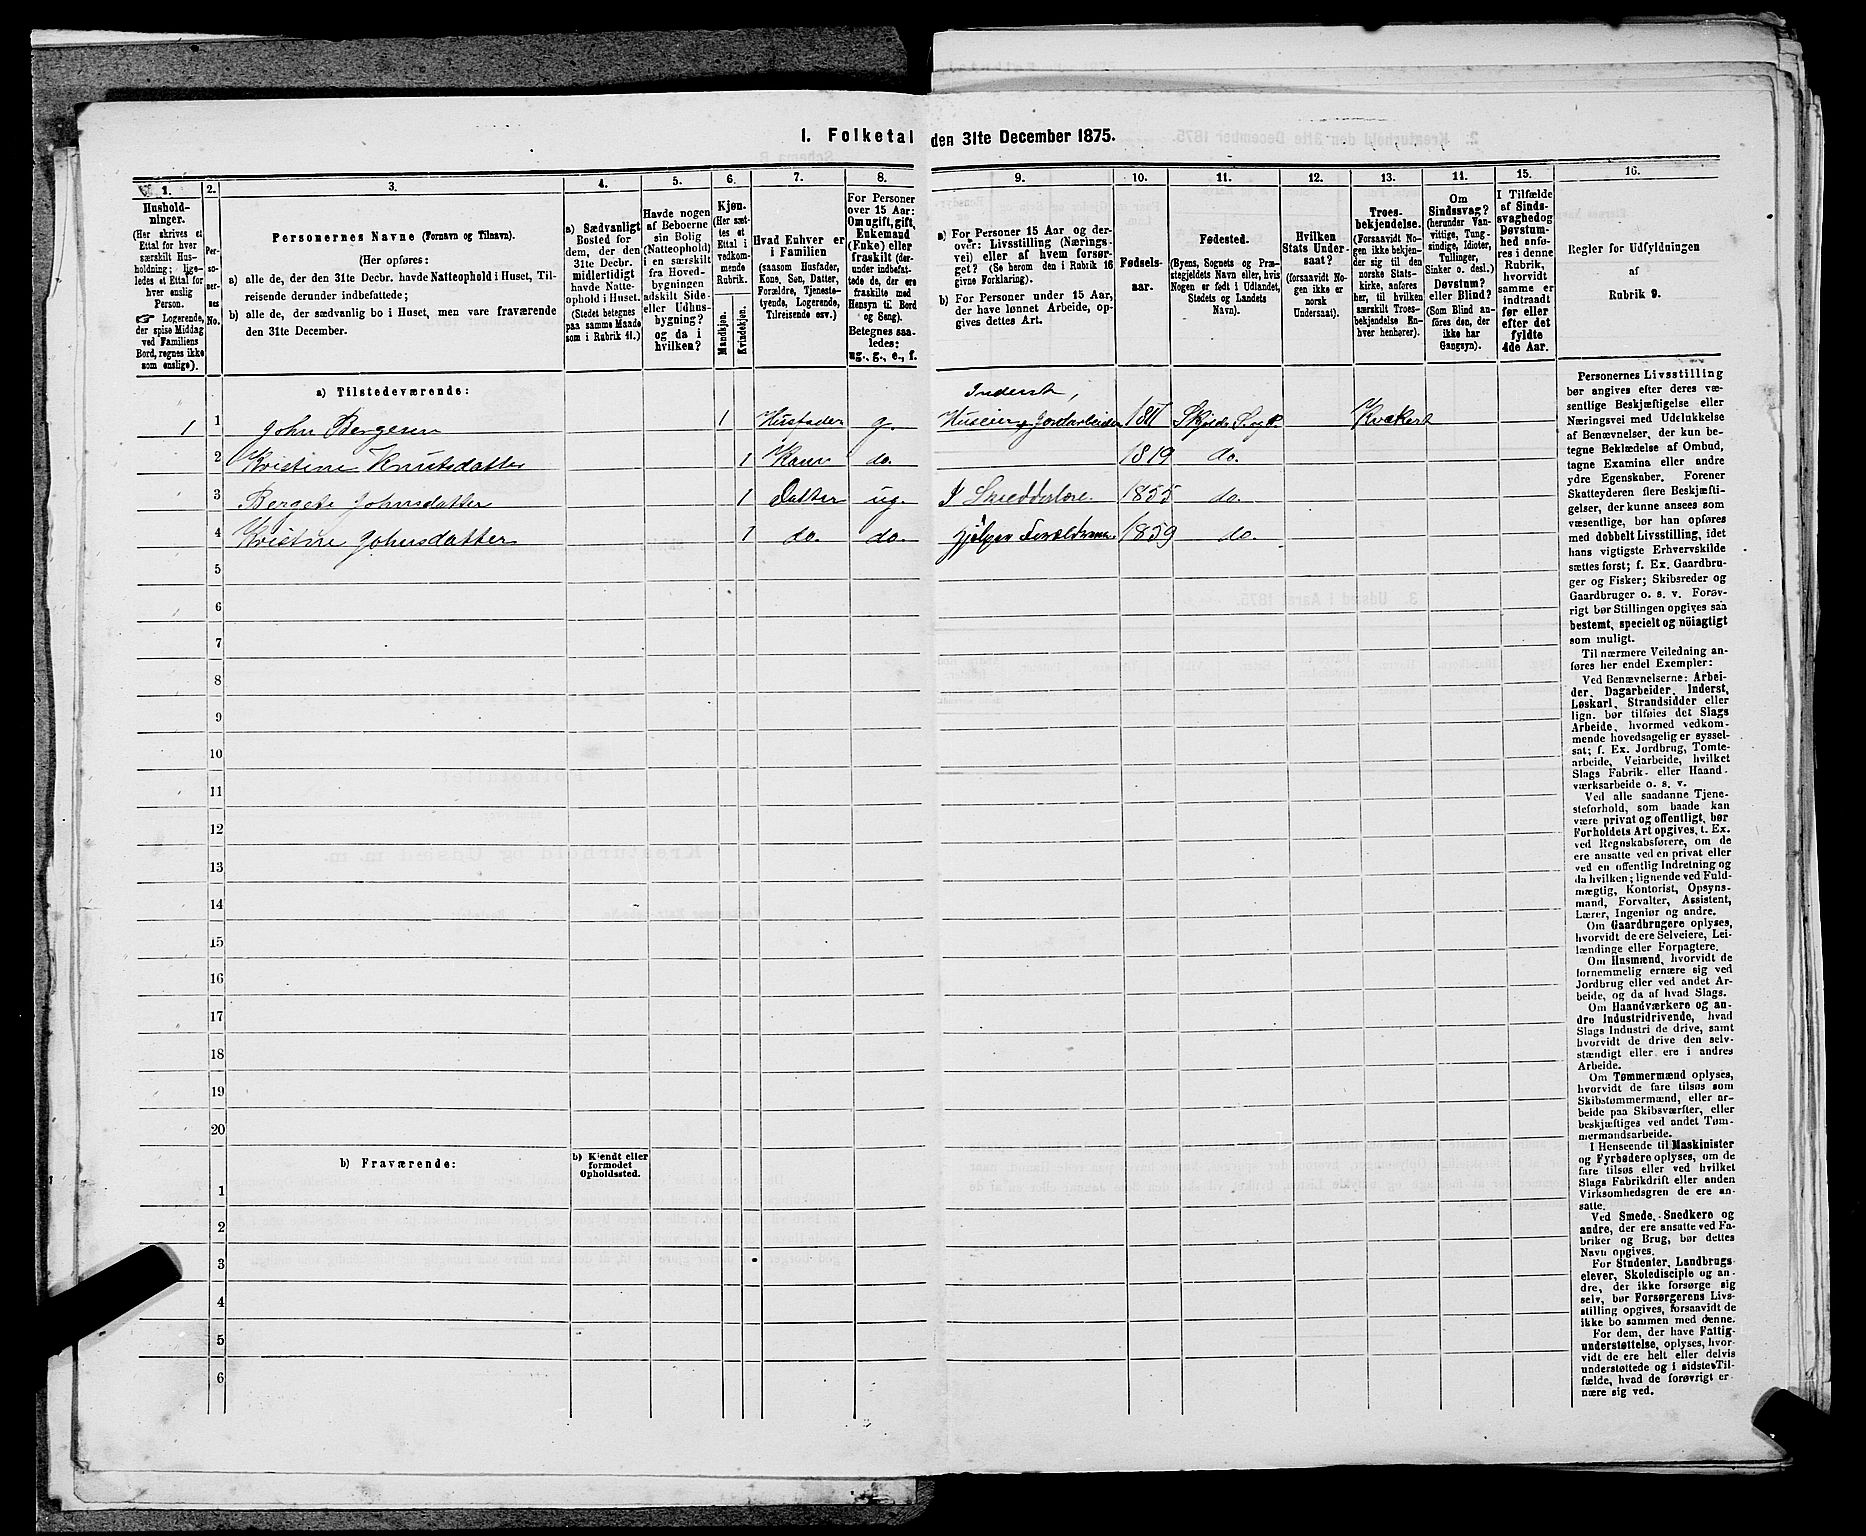 1. Folketal den 31te December 1875.
1.
Hushold-
ninger.
(Her skrives et
Ettal for hver
særskilt Hus-
holdning; lige-
ledes et Ettal for
hver enslig
Person.
☞ Logerende,
der spise Middag
ved Familiens
Bord, regnes ikke
som enslige).
2.
Per-
so-
ner-
nes
No.
3.
Personernes Navne (Fornavn og Tilnavn).
(Her opføres:
a) alle de, der den 31te Decbr. havde Natteophold i Huset, Til-
reisende derunder indbefattede;
b) alle de, der sædvanlig bo i Huset, men vare fraværende
den 31te December.
4.
a) Sædvanligt
Bosted for
dem, der den
31te Decbr.
midlertidigt
havde Natte-
ophold i Huset.
(Stedet betegnes
paa samme Maade
som i Rubrik 11.)
5.
Havde nogen
af Beboerne
sin Bolig
(Natteophold)
i en særskilt
fra Hoved-
bygningen
adskilt Side-
eller Udhus-
bygning?
og da i
hvilken?
6.
Kjøn.
(Her sæt-
tes et
Ettal i
vedkom-
mende
Rubrik.
Mandkjøn.
Kvindekjøn.
7.
Hvad Enhver er
i Familien
(saasom Husfader,
Kone, Søn, Datter,
Forældre, Tjeneste-
tyende, Logerende,
Tilreisende osv.)
8.
For Personer
over 15 Aar:
Om ugift, gift,
Enkemand
(Enke) eller
fraskilt (der-
under indbefat-
tede de, der ere
fraskilte med
Hensyn til Bord
og Seng).
Betegnes saa-
ledes:
ug., g., e., f.
9.
a) For Personer 15 Aar og der-
over: Livsstilling (Nærings-
vei) eller af hvem forsør-
get? (Se herom den i Rubrik 16
givne Forklaring).
b) For Personer under 15 Aar,
der have lønnet Arbeide, op-
gives dettes Art.
10.
Fødsels-
aar.
11.
Fødested.
(Byens, Sognets og Præ-
stegjeldets Navn eller, hvis
Nogen er født i Udlandet,
Stedets og Landets
Navn).
12.
Hvilken
Stats Under-
saat?
(forsaavidt No-
gen ikke er
norsk
Undersaat).
13.
Troes-
bekjendelse.
(Forsaavidt No-
gen ikke bekjen-
der sig til den
norske Stats-
kirke, anføres
her, til hvilken
særskilt Troes-
bekjendelse En-
hver henhører).
14.
Om
Sindssvag?
(herunder Van-
vittige, Tung-
sindige, Idioter,
Tullinger,
Sinker o. desl.)
Døvstum?
eller Blind?
(Som Blind an-
føres den, der
ikke har
Gangsyn).
15.
I Tilfælde
af Sinds-
svaghed og
Døvstum-
hed anfø-
res i denne
Rubrik,
hvorvidt
samme er
indtraadt
før eller
efter det
fyldte
4de Aar.
16.
Regler for Udfyldningen
af
Rubrik 9.
a) Tilstedeværende:
Inderst,
1 1 John Bergesen 1 Husfader g. Huseier, Jordarbeider 1811 Skjolds S. og P. Kvæker
2 Kristine Knutsdatter 1 Kone do. 1819 do.
3 Bergete Johnsdatter 1 Datter ug. I Skredderlære 1855 do.
4 Kristine Johnsdatter 1 do. do. hjælper Forældrene 1859 do.
5
6
7
8
9
10
11
12
13
14
15
16
17
18
19
20
b) Fraværende:
b) Kjendt eller
formodet
Opholdssted.
1
2
3
4
5
6
Personernes Livsstilling
bør angives efter deres væ-
sentlige Beskjæftigelse eller
Næringsvei med Udelukkelse
af Benævnelser, der kun be-
tegne Beklædelse af Ombud,
tagne Examina eller andre
ydre Egenskaber. Forener
Skatteyderen flere Beskjæfti-
gelser, der kunne ansees som
væsentlige, bør han opføres
med dobbelt Livsstilling, idet
hans vigtigste Erhvervskilde
sættes først; f. Ex. Gaardbru-
ger og Fisker; Skibsreder og
Gaardbruger o. s. v. Forøv-
rigt bør Stillingen opgives saa
bestemt, specielt og nöiagtigt
som muligt.
Til nærmere Veiledning an-
føres her endel Exempler:
Ved Benævnelserne: Arbei-
der, Dagarbeider, Inderst,
Løskarl, Strandsidder eller
lign. bør tilføies det Slags
Arbeide, hvormed vedkom-
mende hovedsagelig er syssel-
sat; f. Ex. Jordbrug, Tomte-
arbeide, Veiarbeide, hvilket
Slags Fabrik- eller Haand-
værksarbeide o. s. v.
Ved alle saadanne Tjene-
steforhold, som baade kan
være privat og offentligt, bør
Forholdets Art opgives, t. Ex.
ved Regnskabsførere, om de
ere ansatte ved en privat eller
ved en offentlig Indretning og
da hvilken; lignende ved Fuld-
mægtig, Kontorist, Opsyns-
mand, Forvalter, Assistent,
Lærer, Ingeniør og andre.
Om Gaardbrugere oplyses,
hvorvidt de ere Selveiere, Lei-
lændinge eller Forpagtere.
Om Husmænd, hvorvidt de
fornemmelig ernære sig ved
Jordbrug eller ved andet Ar-
beide, og da af hvad Slags.
Om Haandværkere og an-
dre Industridrivende, hvad
Slags Industri de drive, samt
hvorvidt de drive den selv-
stændigt eller ere i andres
Arbeide.
Om Tømmermænd oplyses,
hvorvidt de fare tilsøs som
Skibstømmermænd, eller ar-
beide paa Skibsværfter, eller
beskjæftiges ved andet Tøm-
mermandsarbeide.
I Henseende til Maskinister
og Fyrbødere oplyses, om de
fare tilsøs eller ved hvilket
Slags Fabrikdrift eller anden
Virksomhedsgren de ere an-
satte.
Ved Smede, Snedkere og
andre, der ere ansatte ved Fa-
briker og Brug, bør dettes
Navn opgives.
For Studenter, Landbrugs-
elever, Skoledisciple og an-
dre, der ikke forsørge sig
selv, bør Forsørgerens Livs-
stilling opgives, forsaavidt de
ikke bo sammen med denne.
For dem, der have Fattig-
understøttelse, oplyses, hvor-
vidt de ere helt eller delvis
understøttede og i sidste Til-
fælde, hvad de forøvrigt er-
nære sig ved.